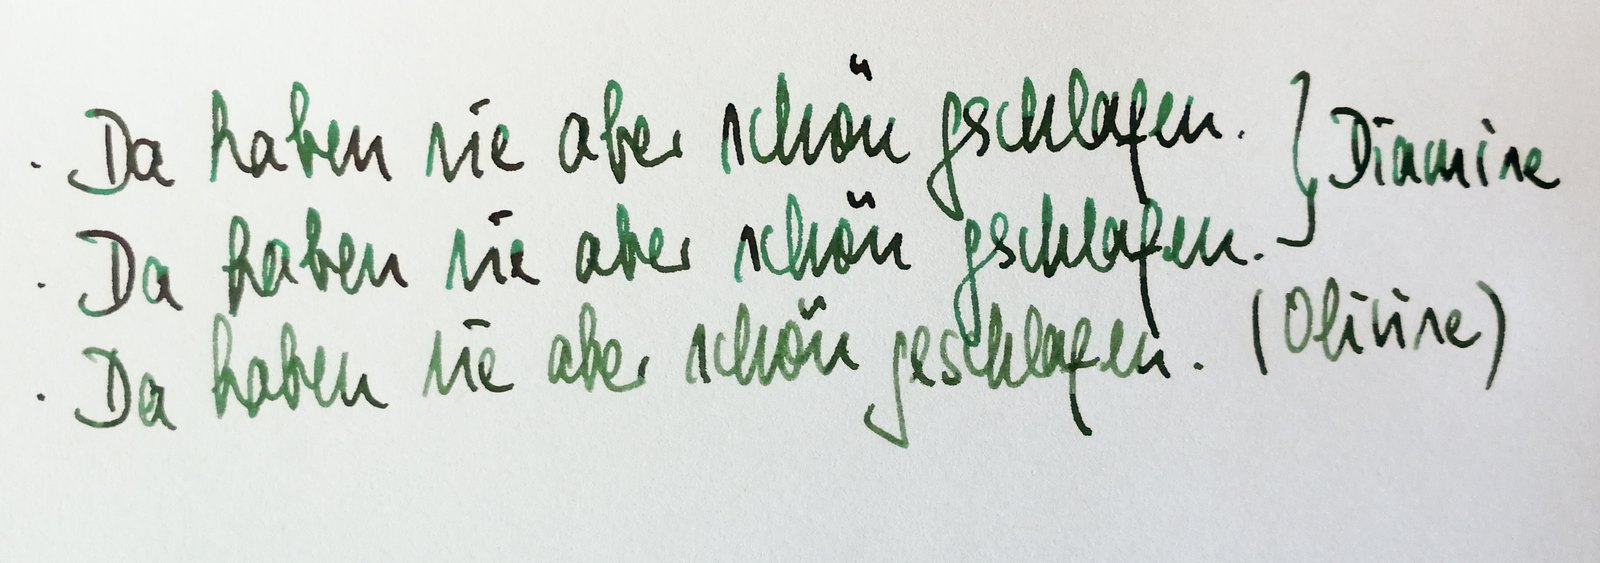 · Da haben sie aber schön gschlafen. } Diamine
· Da haben sie aber schön gschlafen.
· Da haben sie aber schön geschlafen. (Olivine)